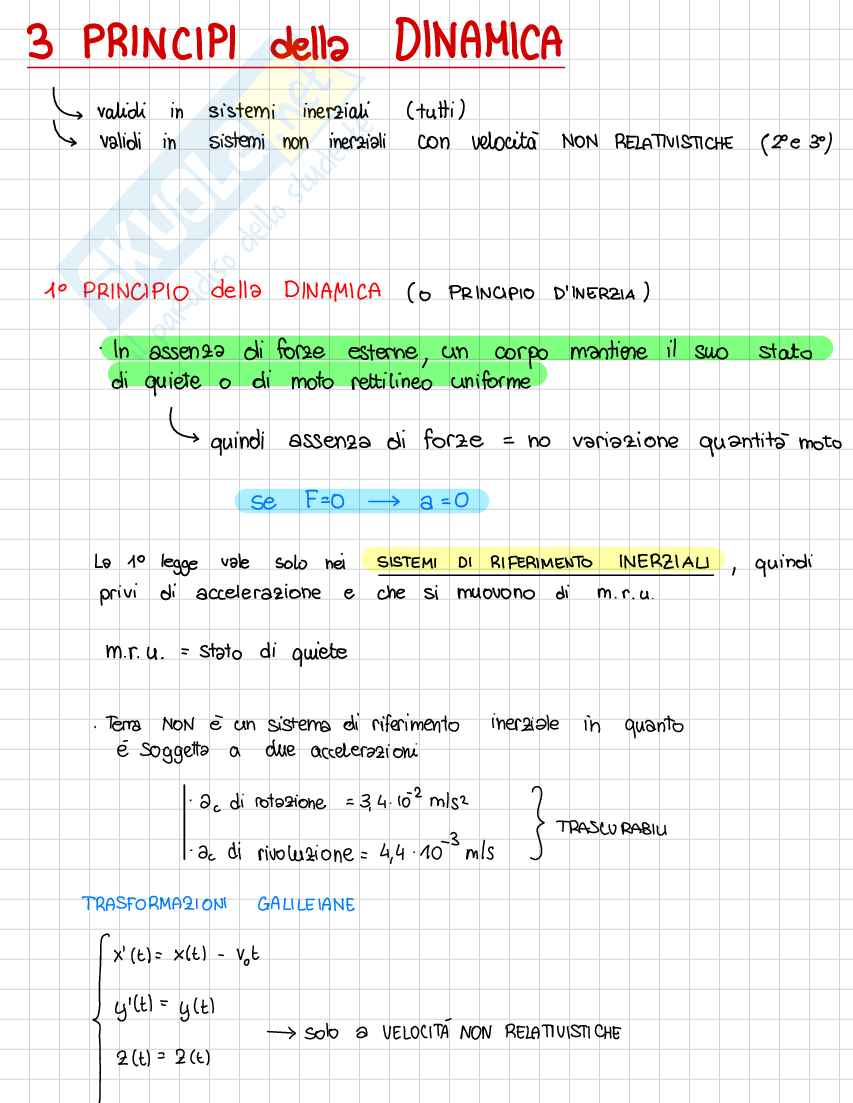 3 PRINCIPI della DINAMICA
validi in sistemi inerziali (tutti)
validi in sistemi non inerziali con velocità NON RELATIVISTICHE (2° e 3°)
SKUOLA.net
il paradiso dello studente
1° PRINCIPIO della DINAMICA (o PRINCIPIO D'INERZIA)
· In assenza di forze esterne, un corpo mantiene il suo stato
di quiete o di moto rettilineo uniforme
quindi assenza di forze = no variazione quantità moto
se F=0 → a=0
La 1° legge vale solo nei SISTEMI DI RIFERIMENTO INERZIALI, quindi
privi di accelerazione e che si muovono di m.r.u.
m.r.u. = stato di quiete
· Terra NON è un sistema di riferimento inerziale in quanto
è soggetta a due accelerazioni
· ac di rotazione = 3,4·10⁻² m/s²
· ac di rivoluzione = 4,4·10⁻³ m/s
TRASCURABILI
TRASFORMAZIONI GALILEIANE
x'(t) = x(t) - v₀t
y'(t) = y(t)
→ solo a VELOCITÀ NON RELATIVISTICHE
z(t) = z(t)